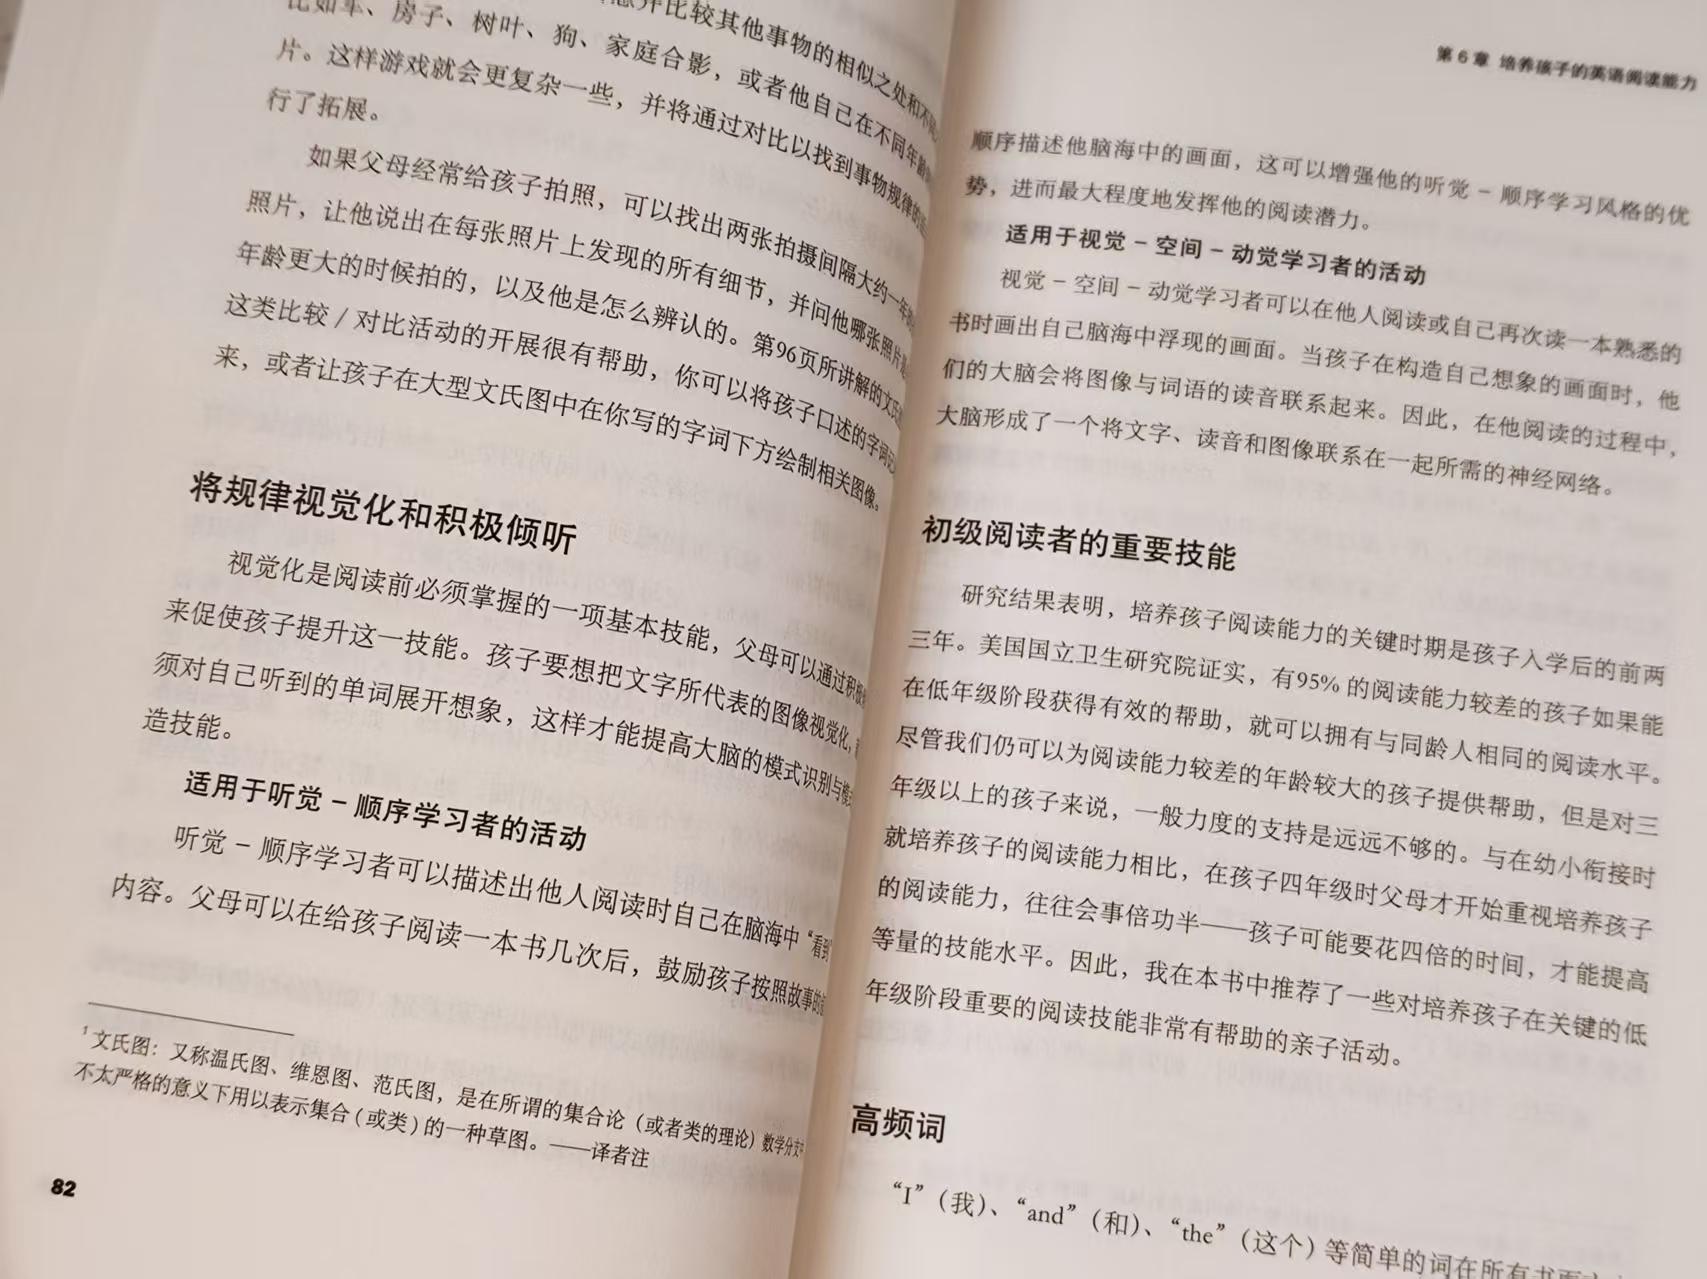 并比较其他事物的相似之处和不同
比如车、房子、树叶、狗、家庭合影，或者他自己在不同年龄
片。这样游戏就会更复杂一些，并将通过对比以找到事物规律的
行了拓展。
如果父母经常给孩子拍照，可以找出两张拍摄间隔大约一年的
照片，让他说出在每张照片上发现的所有细节，并问他哪张照片是
年龄更大的时候拍的，以及他是怎么辨认的。第96页所讲解的文氏
这类比较/对比活动的开展很有帮助，你可以将孩子口述的字词记
来，或者让孩子在大型文氏图中在你写的字词下方绘制相关图像。
将规律视觉化和积极倾听
视觉化是阅读前必须掌握的一项基本技能，父母可以通过积极
来促使孩子提升这一技能。孩子要想把文字所代表的图像视觉化，
须对自己听到的单词展开想象，这样才能提高大脑的模式识别与模式
造技能。
适用于听觉–顺序学习者的活动
听觉–顺序学习者可以描述出他人阅读时自己在脑海中“看到
内容。父母可以在给孩子阅读一本书几次后，鼓励孩子按照故事的
1 文氏图：又称温氏图、维恩图、范氏图，是在所谓的集合论（或者类的理论）数学分支中
不太严格的意义下用以表示集合（或类）的一种草图。——译者注
82
第6章 培养孩子的英语阅读能力
顺序描述他脑海中的画面，这可以增强他的听觉–顺序学习风格的优
势，进而最大程度地发挥他的阅读潜力。
适用于视觉–空间–动觉学习者的活动
视觉–空间–动觉学习者可以在他人阅读或自己再次读一本熟悉的
书时画出自己脑海中浮现的画面。当孩子在构造自己想象的画面时，他
们的大脑会将图像与词语的读音联系起来。因此，在他阅读的过程中，
大脑形成了一个将文字、读音和图像联系在一起所需的神经网络。
初级阅读者的重要技能
研究结果表明，培养孩子阅读能力的关键时期是孩子入学后的前两
三年。美国国立卫生研究院证实，有95%的阅读能力较差的孩子如果能
在低年级阶段获得有效的帮助，就可以拥有与同龄人相同的阅读水平。
尽管我们仍可以为阅读能力较差的年龄较大的孩子提供帮助，但是对三
年级以上的孩子来说，一般力度的支持是远远不够的。与在幼小衔接时
就培养孩子的阅读能力相比，在孩子四年级时父母才开始重视培养孩子
的阅读能力，往往会事倍功半——孩子可能要花四倍的时间，才能提高
等量的技能水平。因此，我在本书中推荐了一些对培养孩子在关键的低
年级阶段重要的阅读技能非常有帮助的亲子活动。
高频词
“I”（我）、“and”（和）、“the”（这个）等简单的词在所有书面